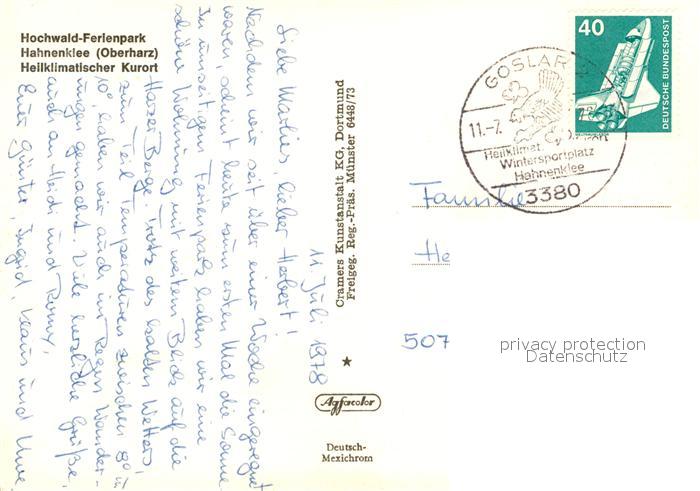 Hochwald-Ferienpark
Hahnenklee (Oberharz)
Heilklimatischer Kurort
11. Juli 1978
Liebe Marlies, lieber Herbert!
Nachdem wir seit über einer Woche eingeregnet
waren, scheint heute zum ersten Mal die Sonne.
Im umseitigen Ferienpark haben wir eine
schöne Wohnung mit weitem Blick auf die
Harzer Berge. Trotz des kalten Wetters,
zum Teil Temperaturen zwischen 8° u.
10°, haben wir auch im Regen Wander-
ungen gemacht. Viele herzliche Grüße,
auch an Heidi und Romy,
Euer Günter, Ingrid, Klaus und Uwe
Cramers Kunstanstalt KG, Dortmund
Freigeg. Reg.-Präs. Münster 6448/73
Agfacolor
Deutsch-
Mexichrom
40
DEUTSCHE BUNDESPOST
GOSLAR
11.-7.
Heilklimat.
Wintersportplatz
Hahnenklee
3380
Familie
He
507
privacy protection
Datenschutz